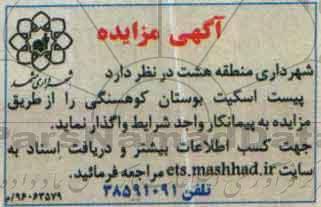 آگهی مزایده
شهرداری مشهد
شهرداری منطقه هشت در نظر دارد
پیست اسکیت بوستان کوهسنگی را از طریق
مزایده به پیمانکار واجد شرایط واگذار نماید.
جهت کسب اطلاعات بیشتر و دریافت اسناد به
سایت ets.mashhad.ir مراجعه فرمائید.
تلفن ۳۸۵۹۱۰۹۱
۹۶۰۶۳۵۷۹/م